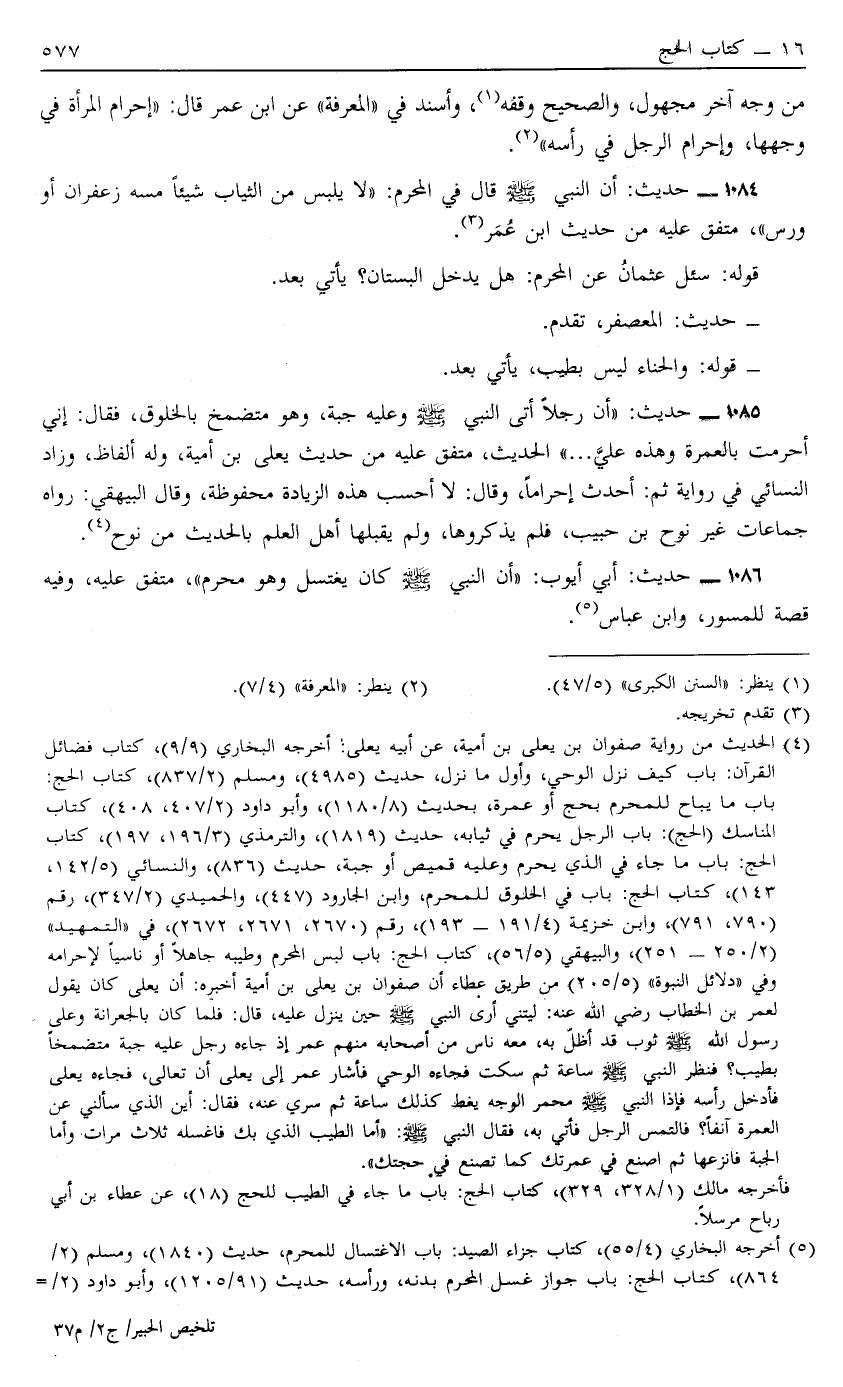 ١٦ ــ كتاب الحج ٥٧٧
من وجه آخر مجهول، والصحيح وقفه(١)، وأسند في «المعرفة» عن ابن عمر قال: «إحرام المرأة في
وجهها، وإحرام الرجل في رأسه»(٢).
١٠٨٤ ــ حديث: أن النبي ﷺ قال في المحرم: «لا يلبس من الثياب شيئاً مسه زعفران أو
ورس»، متفق عليه من حديث ابن عُمَر(٣).
قوله: سئل عثمانُ عن المحرم: هل يدخل البستان؟ يأتي بعد.
ــ حديث: المعصفر، تقدم.
ــ قوله: والحناء ليس بطيب، يأتي بعد.
١٠٨٥ ــ حديث: «أن رجلاً أتى النبي ﷺ وعليه جبة، وهو متضمخ بالخلوق، فقال: إني
أحرمت بالعمرة وهذه عليَّ...» الحديث، متفق عليه من حديث يعلى بن أمية، وله ألفاظ، وزاد
النسائي في رواية ثم: أحدث إحراماً، وقال: لا أحسب هذه الزيادة محفوظة، وقال البيهقي: رواه
جماعات غير نوح بن حبيب، فلم يذكروها، ولم يقبلها أهل العلم بالحديث من نوح(٤).
١٠٨٦ ــ حديث: أبي أيوب: «أن النبي ﷺ كان يغتسل وهو محرم»، متفق عليه، وفيه
قصة للمسور، وابن عباس(٥).
(١) ينظر: «السنن الكبرى» (٤٧/٥). (٢) ينطر: «المعرفة» (٧/٤).
(٣) تقدم تخريجه.
(٤) الحديث من رواية صفوان بن يعلى بن أمية، عن أبيه يعلى: أخرجه البخاري (٩/٩)، كتاب فضائل
القرآن: باب كيف نزل الوحي، وأول ما نزل، حديث (٤٩٨٥)، ومسلم (٨٣٧/٢)، كتاب الحج:
باب ما يباح للمحرم بحج أو عمرة، بحديث (١١٨٠/٨)، وأبو داود (٤٠٧/٢، ٤٠٨)، كتاب
المناسك (الحج): باب الرجل يحرم في ثيابه، حديث (١٨١٩)، والترمذي (١٩٦/٣، ١٩٧)، كتاب
الحج: باب ما جاء في الذي يحرم وعليه قميص أو جبة، حديث (٨٣٦)، والنسائي (١٤٢/٥،
١٤٣)، كتاب الحج: باب في الخلوق للمحرم، وابن الجارود (٤٤٧)، والحميدي (٣٤٧/٢)، رقم
(٧٩٠، ٧٩١)، وابن خزيمة (١٩١/٤ ــ ١٩٣)، رقم (٢٦٧٠، ٢٦٧١، ٢٦٧٢)، في «التمهيد»
(٢٥٠/٢ ــ ٢٥١)، والبيهقي (٥٦/٥)، كتاب الحج: باب لبس المحرم وطيبه جاهلاً أو ناسياً لإحرامه
وفي «دلائل النبوة» (٢٠٥/٥) من طريق عطاء أن صفوان بن يعلى بن أمية أخبره: أن يعلى كان يقول
لعمر بن الخطاب رضي الله عنه: ليتني أرى النبي ﷺ حين ينزل عليه، قال: فلما كان بالجعرانة وعلى
رسول الله ﷺ ثوب قد أظلّ به، معه ناس من أصحابه منهم عمر إذ جاءه رجل عليه جبة متضمخاً
بطيب؟ فنظر النبي ﷺ ساعة ثم سكت فجاءه الوحي فأشار عمر إلى يعلى أن تعالى، فجاءه يعلى
فأدخل رأسه فإذا النبي ﷺ محمر الوجه يغط كذلك ساعة ثم سري عنه، فقال: أين الذي سألني عن
العمرة آنفاً؟ فالتمس الرجل فأتي به، فقال النبي ﷺ: «أما الطيب الذي بك فاغسله ثلاث مرات وأما
الجبة فانزعها ثم اصنع في عمرتك كما تصنع في حجتك».
فأخرجه مالك (٣٢٨/١، ٣٢٩)، كتاب الحج: باب ما جاء في الطيب للحج (١٨)، عن عطاء بن أبي
رباح مرسلاً.
(٥) أخرجه البخاري (٥٥/٤)، كتاب جزاء الصيد: باب الاغتسال للمحرم، حديث (١٨٤٠)، ومسلم (٢/
٨٦٤)، كتاب الحج: باب جواز غسل المحرم بدنه، ورأسه، حديث (١٢٠٥/٩١)، وأبو داود (٢/=
تلخيص الحبير/ ج٢/ م٣٧